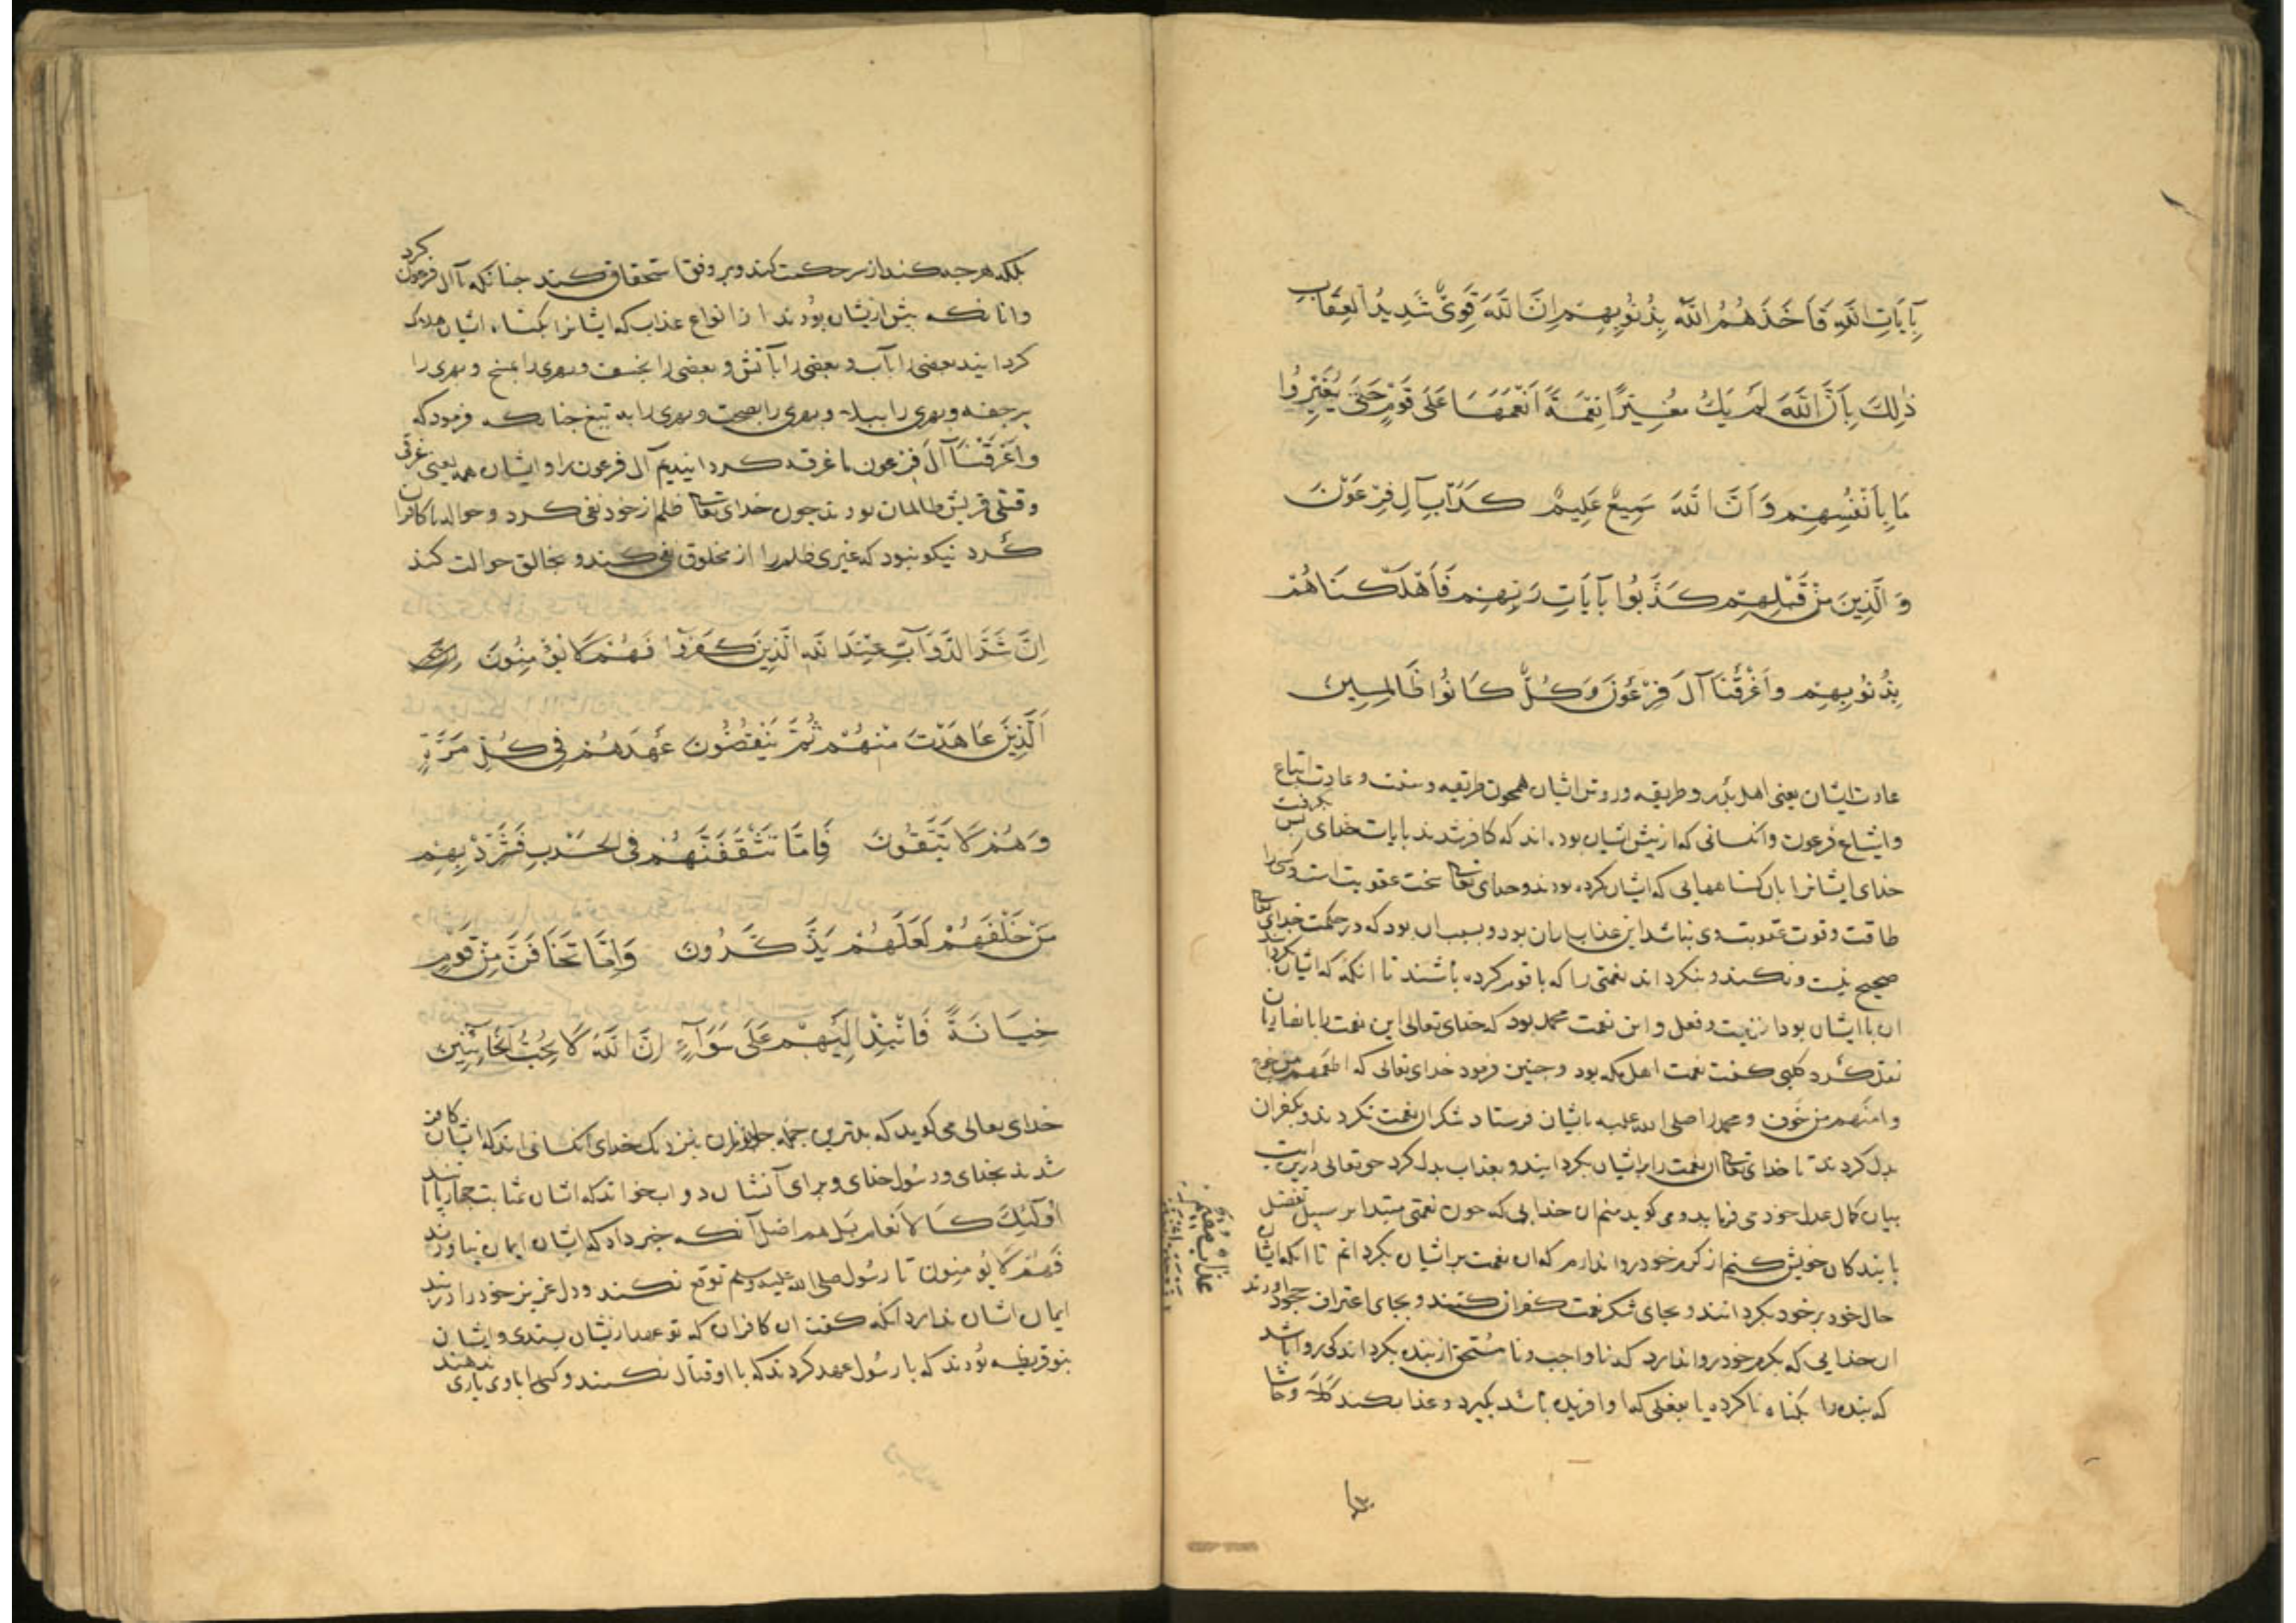 بِآيَاتِ اللَّهِ فَأَخَذَهُمُ اللَّهُ بِذُنُوبِهِمْ إِنَّ اللَّهَ قَوِىٌّ شَدِيدُ الْعِقَابِ
ذٰلِكَ بِأَنَّ اللَّهَ لَمْ يَكُ مُغَيِّرًا نِعْمَةً أَنْعَمَهَا عَلَى قَوْمٍ حَتَّى يُغَيِّرُوا
مَا بِأَنْفُسِهِمْ وَأَنَّ اللَّهَ سَمِيعٌ عَلِيمٌ كَدَأْبِ آلِ فِرْعَوْنَ
وَالَّذِينَ مِنْ قَبْلِهِمْ كَذَّبُوا بِآيَاتِ رَبِّهِمْ فَأَهْلَكْنَاهُمْ
بِذُنُوبِهِمْ وَأَغْرَقْنَا آلَ فِرْعَوْنَ وَكُلٌّ كَانُوا ظَالِمِينَ
عادت ایشان یعنی اهل بدر و طریقه و روش ایشان همچون طریقه و سنت و عادت اتباع
و اشیاع فرعون و انکسانی که از پیش ایشان بوده اند که کافر شدند بایات خدای پس بگرفت
خدای ایشانرا بان کناههایی که ایشان کرده بودند و خدای تعالی سخت عقوبت است و کسی را
طاقت و قوت عقوبت وی نباشد این عذاب بود و بسبب ان بود که در حکمت خدای تعالی
صحیح نیست و نکند و بنکرداند نعمتی را که با قوم کرده باشند تا انکه که ایشان بکردانند
ان با ایشان بود از نیت و فعل و این نعمت محمد بود که خدای تعالی این نعمت را با انصاریان
نقل کرد کلبی کفت نعمت اهل مکه بود و جنین فرمود خدای تعالی که اطعمهم من جوع
و امنهم من خوف و محمد را صلی الله علیه بایشان فرستاد شکر ان نعمت نکردند و بکفران
بدل کردند تا خدای تعالی ان نعمت را بر ایشان بکردانید و بعذاب بدل کرد حق تعالی درین ایت
بیان کمال عدل خود می فرماید و می کوید منم ان خدایی که جون نعمتی مبتدا بر سبیل تفضل
با بندکان خویش کنم از کرم خود روا ندارم که ان نعمت بر ایشان بکردانم تا انکه ایشان
حال خود بر خود بکردانند و بجای شکر نعمت کفران کنند و بجای اعتراف جحود اورند
ان خدایی که بکرم خود روا ندارد که نا واجب و نا مستحق از بنده بکرداند کی روا باشد
که بنده را بکناه ناکرده یا بفعلی که او افریده باشد بکیرد و عذاب کند کلا و حاشا
عذاب مقیم
بلکه هر جه کند از سر حکمت کند و بر وفق استحقاق کند جنانکه با آل فرعون کرد
و انانکه پیش ازیشان بودند از انواع عذاب که ایشانرا بکناه ایشان هلاک
کردانید بعضی را بآب و بعضی را بآتش و بعضی را بخسف و بهری را بمسخ و بهری را
برجفه و بهری را و بهری را بصیحت و بهری را به تیغ جنانکه فرمود که
و اغرقنا آل فرعون ما غرقه کردانیدیم آل فرعون را و ایشان همه یعنی غرقی
و قتلی قریش ظالمان بودند جون خدای تعالی ظلم از خود نفی کرد و حواله با کافران
کرد نیکو نبود که غیری ظلم را از مخلوق نفی کند و بخالق حوالت کند
إِنَّ شَرَّ الدَّوَآبِّ عِنْدَ اللَّهِ الَّذِينَ كَفَرُوا فَهُمْ لَا يُؤْمِنُونَ
اَلَّذِينَ عَاهَدْتَ مِنْهُمْ ثُمَّ يَنْقُضُونَ عَهْدَهُمْ فِي كُلِّ مَرَّةٍ
وَهُمْ لَا يَتَّقُونَ فَإِمَّا تَثْقَفَنَّهُمْ فِي الْحَرْبِ فَشَرِّدْ بِهِمْ
مَنْ خَلْفَهُمْ لَعَلَّهُمْ يَذَّكَّرُونَ وَإِمَّا تَخَافَنَّ مِنْ قَوْمٍ
خِيَانَةً فَانْبِذْ إِلَيْهِمْ عَلَى سَوَآءٍ إِنَّ اللَّهَ لَا يُحِبُّ الْخَآئِنِينَ
خدای تعالی می کوید که بدترین جمله جانوران بنزدیک خدای انکسانی اند که ایشان کافر
شدند بخدای و رسول خدای و برای آنشان دواب خواند که ایشان بمثابت جهارپایانند
اولئک کالانعام بل هم اضل آنکه خبر داد که ایشان ایمان نیاورند
فهم لا یومنون تا رسول صلی الله علیه وسلم توقع نکند و دل عزیز خود را در بند
ایمان ایشان ندارد انکه کفت ان کافران که تو عهد ازیشان بستدی و ایشان
بنو قریظه بودند که با رسول عهد کردند که با او قتال نکنند و کسی را با وی یاری ندهند